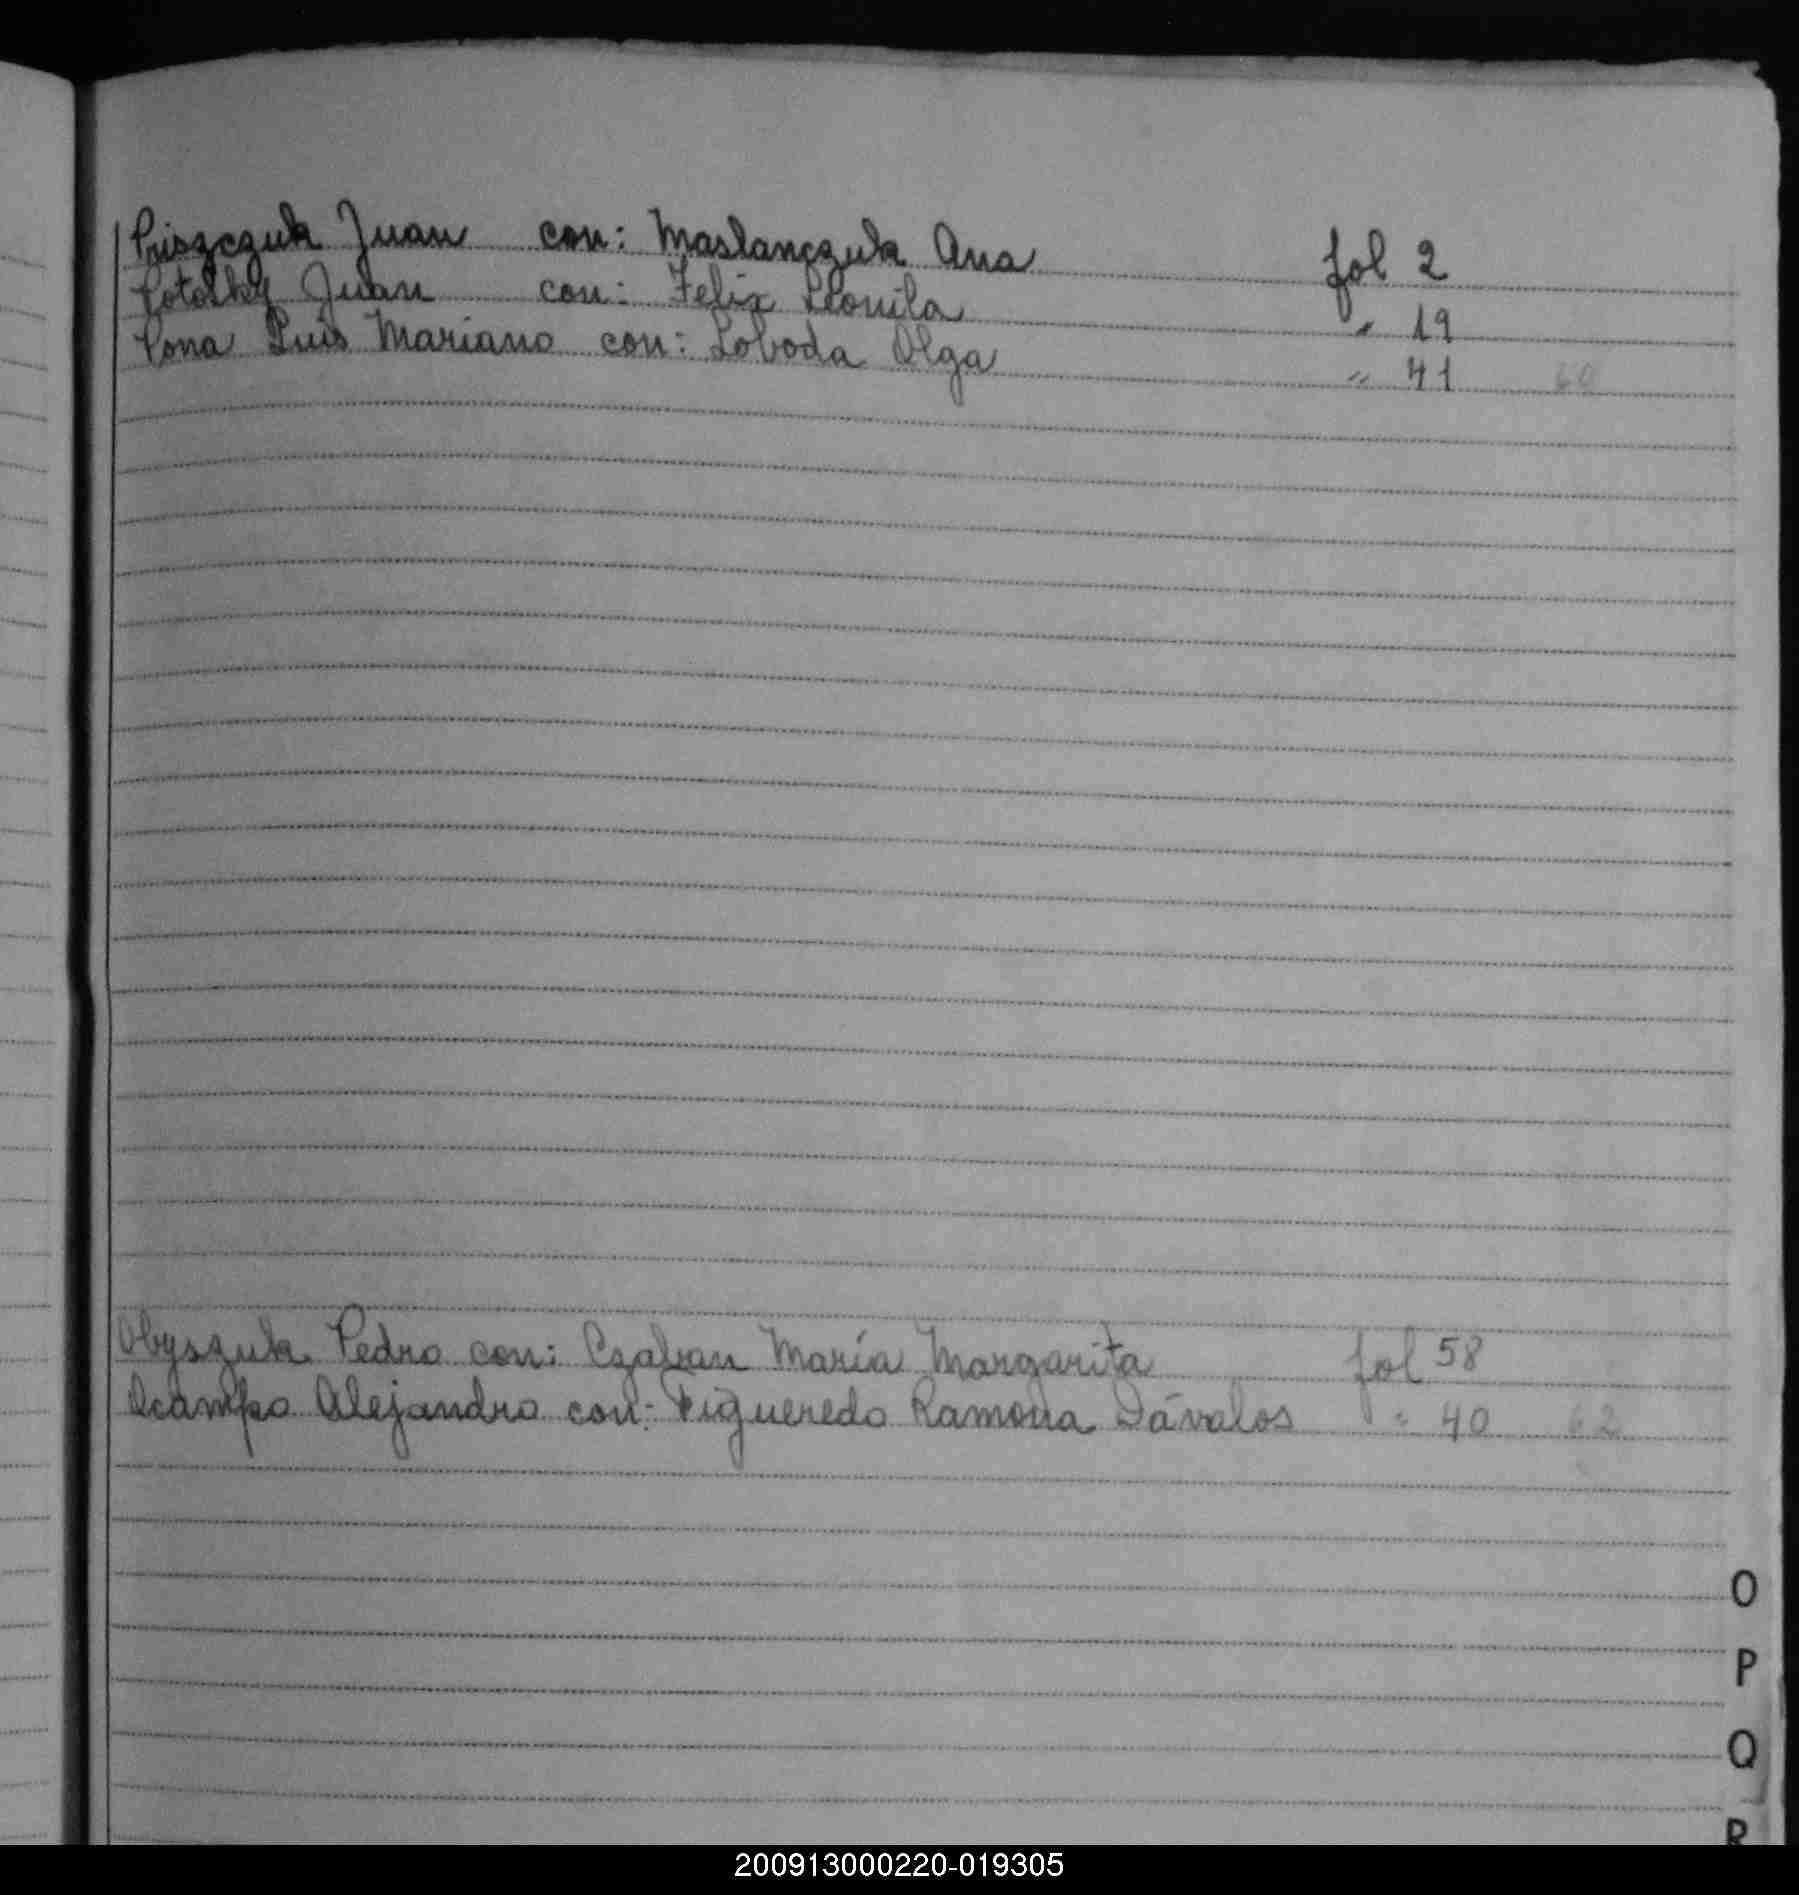 Piszczuk Juan con: Maslanczuk Ana fol 2
Pototky Juan con: Felix Leonila " 19
Pona Luis Mariano con: Loboda Olga " 41 60
Obyszuk Pedro con: Czaban María Margarita fol 58
Ocampo Alejandro con: Figueredo Ramona Dávalos " 40 62
O
P
Q
R
200913000220-019305